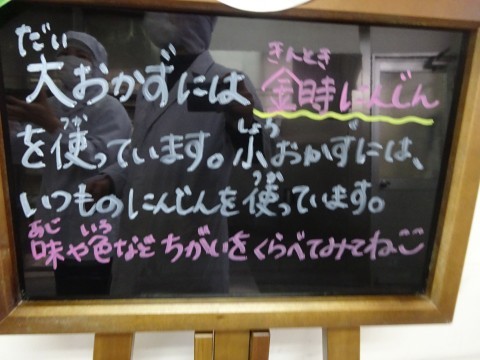 大おかずには金時にんじん
を使っています。小おかずには、
いつものにんじんを使っています。
味や色などちがいをくらべてみてね